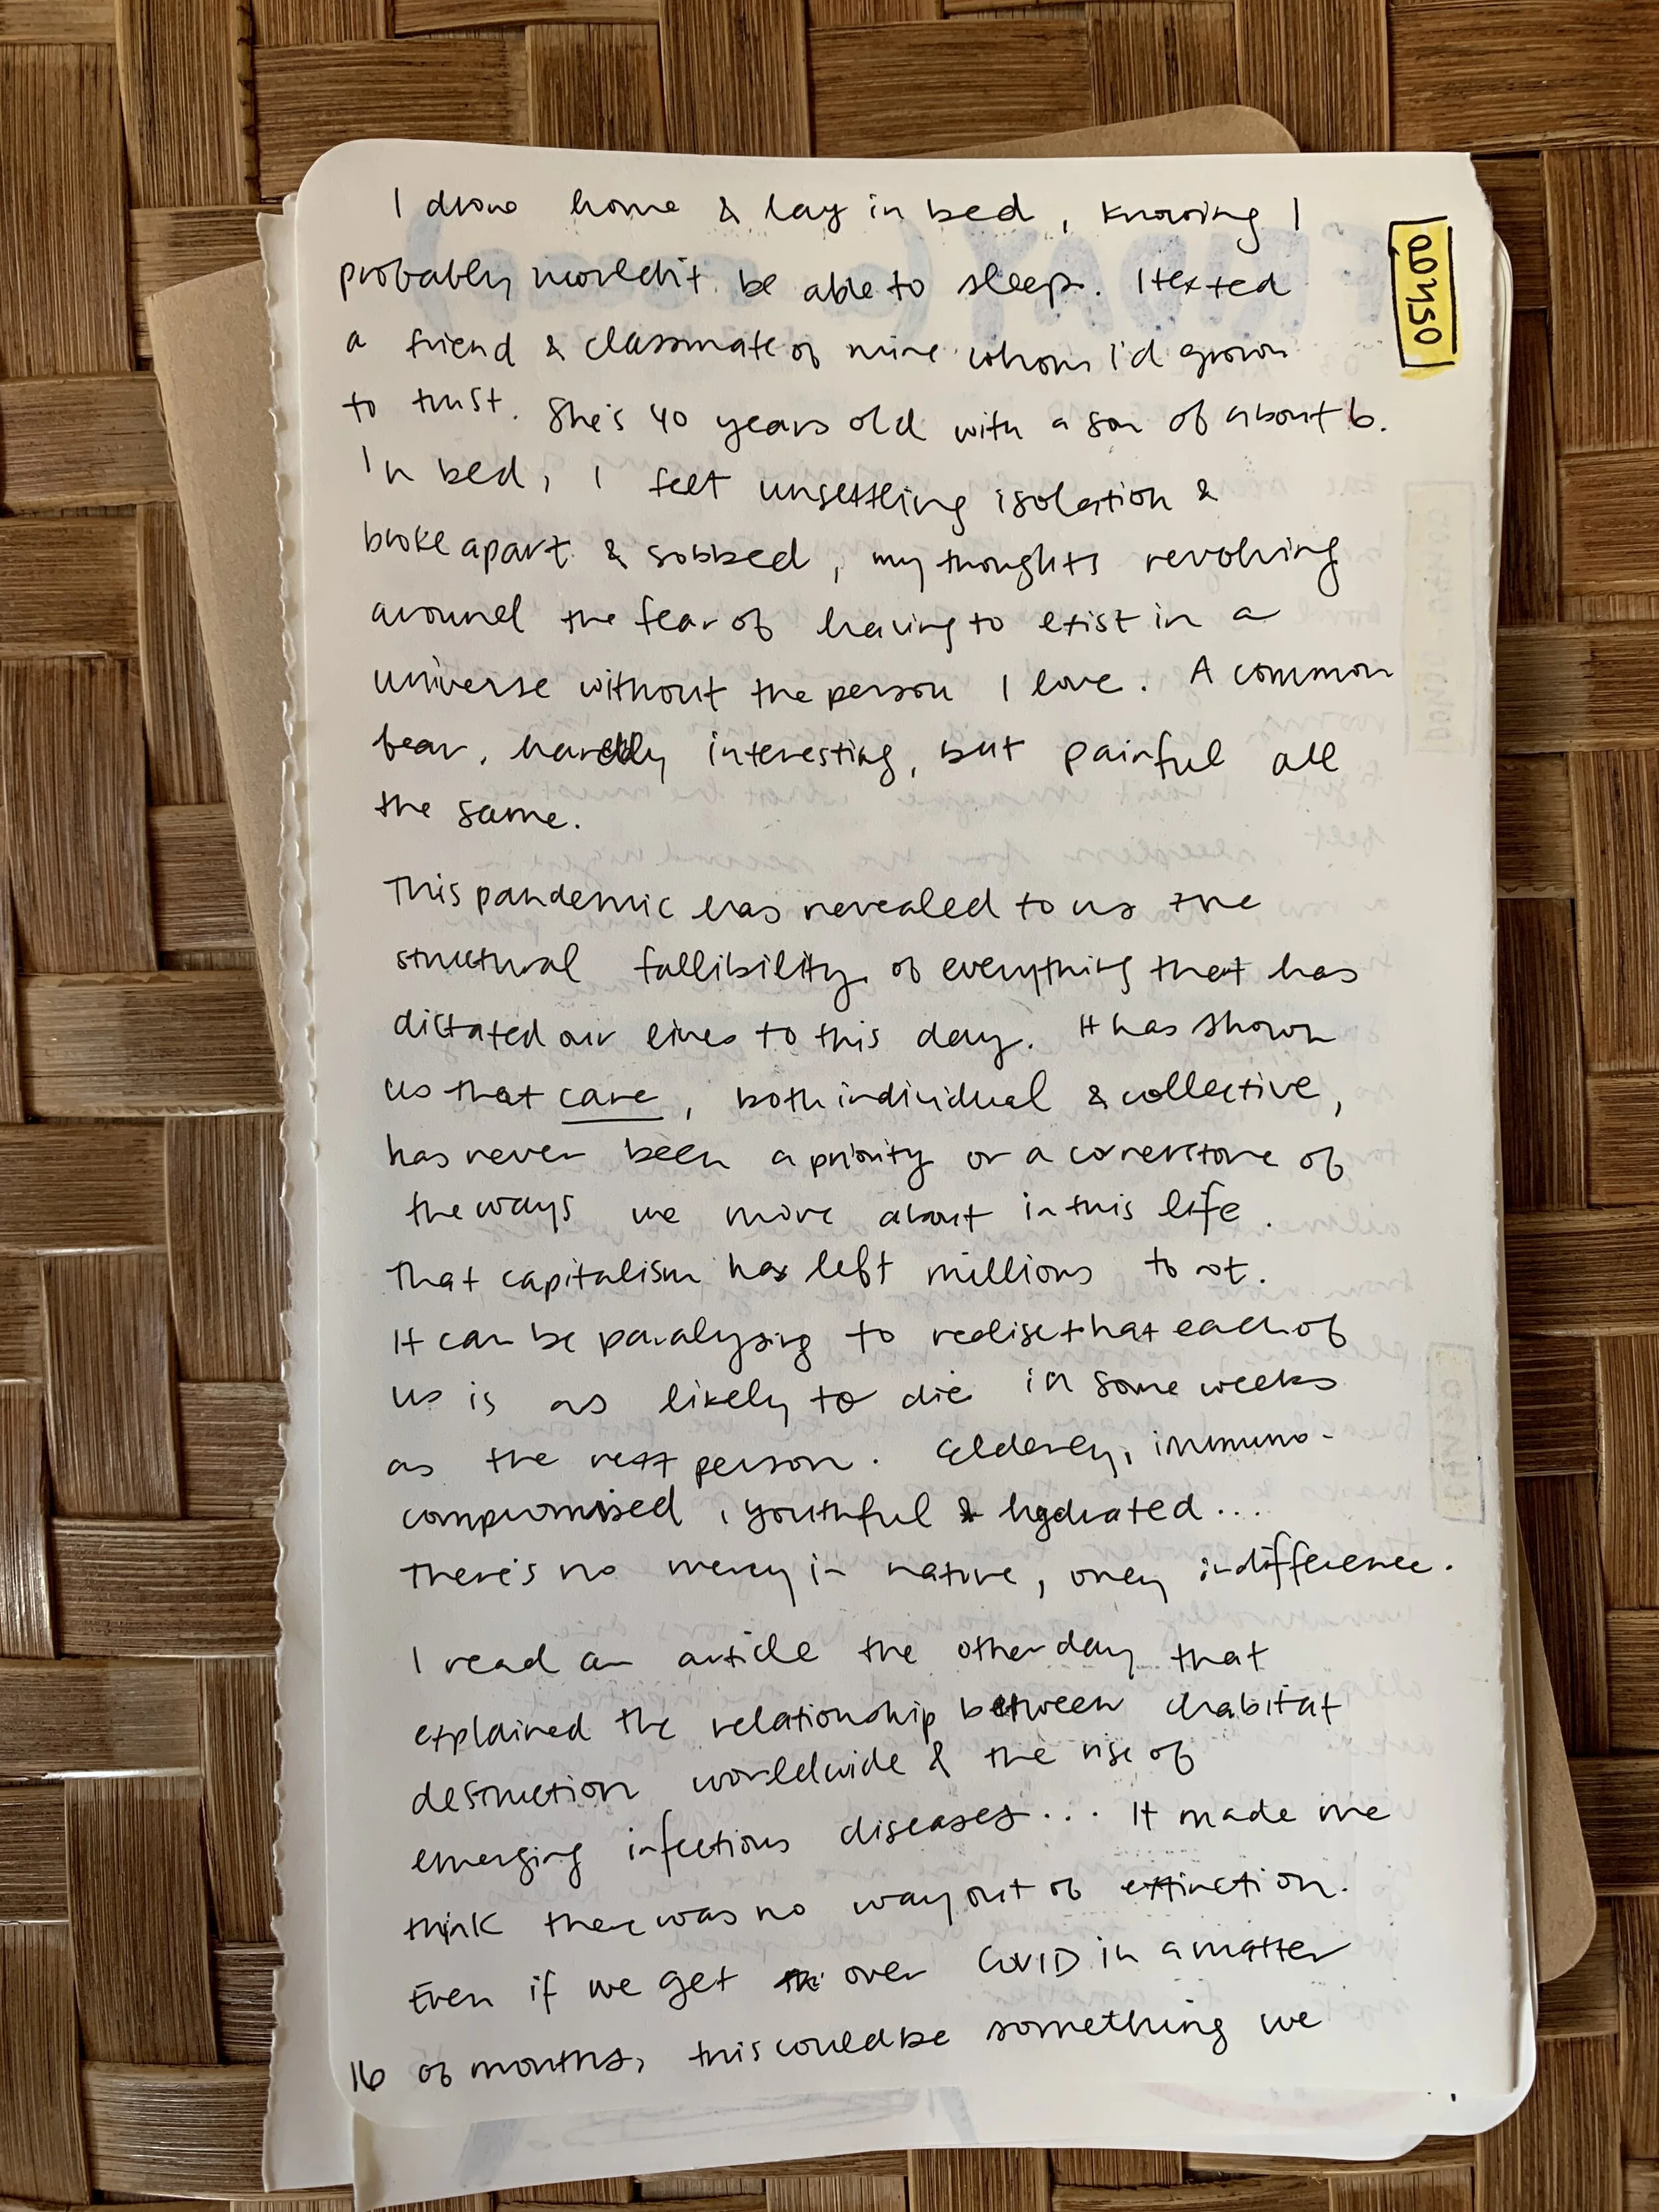 I drove home & lay in bed, knowing I
probably wouldn't be able to sleep. I texted
a friend & classmate of mine whom I'd grown
to trust. She's 40 years old with a son of about 6.
In bed, I felt unsettling isolation &
broke apart & sobbed, my thoughts revolving
around the fear of having to exist in a
universe without the person I love. A common
fear, hardly interesting, but painful all
the same.
This pandemic has revealed to us the
structural fallibility of everything that has
dictated our lives to this day. It has shown
us that care, both individual & collective,
has never been a priority or a cornerstone of
the ways we move about in this life.
That capitalism has left millions to rot.
It can be paralysing to realise that each of
us is as likely to die in some weeks
as the next person. Elderly, immuno-
compromised, youthful & hydrated...
There's no mercy in nature, only indifference.
I read an article the other day that
explained the relationship between habitat
destruction worldwide & the rise of
emerging infectious diseases... It made me
think there was no way out of extinction.
Even if we get over COVID in a matter
of months, this could be something we
16
00450